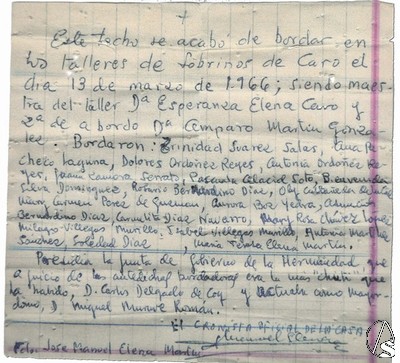 Este techo se acabó de bordar en
los talleres de sobrinos de Caro el
dia 13 de marzo de 1.966; siendo maes-
tra del taller Dª Esperanza Elena Caro y
2ª de a bordo Dª Amparo Martin Gonza-
lez. Bordaron: Trinidad Suarez Salas, Ana Pa-
checo Laguna, Dolores Ordoñez Reyes, Antonia Ordoñez Re-
yes, Zamora Serrato, Pascuala Albacid Soto, Bienvenida
Silva Dominguez, Rosario Bernardino Diaz, Castañeda
Carmen Perez de Guzman, Aurora Yerira, Asunción
Bernardino Diaz, Carmelita Diaz Navarro, Mary Rosa Chavez Lopez
Milagros Villegas Murillo, Isabel Villegas Murillo, Antonia Martinez
Sanchez, Soledad Diaz, Maria Teresa Elena Martin.
Presidia la junta de gobierno de la Hermandad que
a juicio de las bordadoras era la mas "chati" que
ha habido, D. Carlos Delgado de Coy y actuaba como mayor-
domo, D. Miguel Roman.
El CRONISTA OFICIAL DE LA CASA
Manuel Elena
Fdo. Jose Manuel Elena Martin